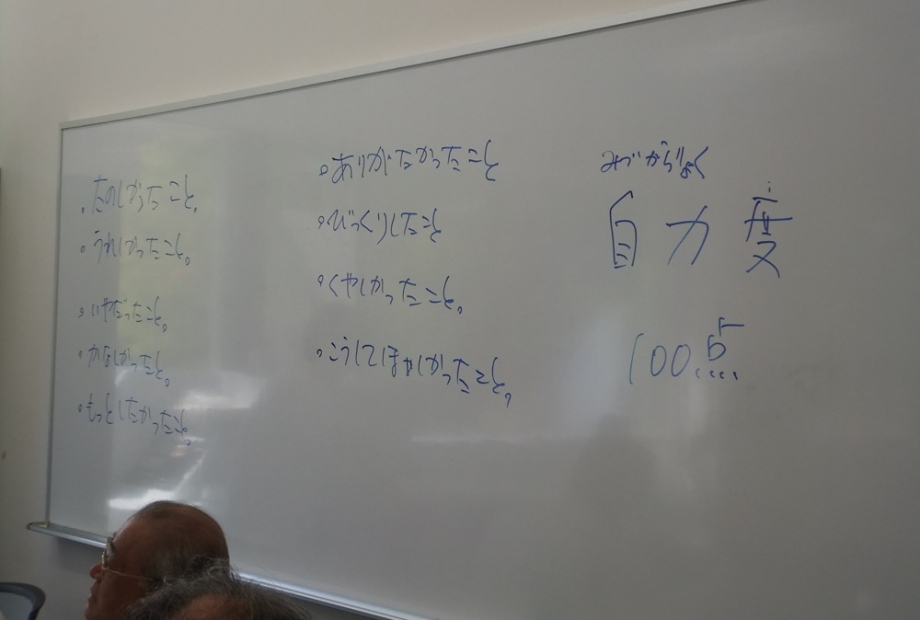 ・たのしかったこと。
・うれしかったこと。
・いやだったこと。
・かなしかったこと。
・もっとしたかったこと。
・ありがたかったこと
・びっくりしたこと
・くやしかったこと。
・こうしてほしかったこと。
みずからりょく
自力度
100